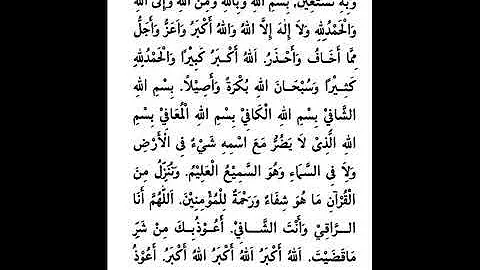 وَبِهِ نَسْتَعِيْنُ، بِسْمِ اللهِ وَبِاللهِ وَمِنَ اللهِ وَاِلَى اللهِ
وَالْحَمْدُلِلّٰهِ وَلَا إِلٰهَ إِلَّا اللهُ وَاللهُ أَكْبَرُ وَأَعَزُّ وَأَجَلُّ
مِمَّا أَخَافُ وَأَحْذَرُ. اَللهُ أَكْبَرُ كَبِيْرًا وَالْحَمْدُلِلّٰهِ
كَثِيْرًا وَسُبْحَانَ اللهِ بُكْرَةً وَأَصِيْلًا. بِسْمِ اللهِ
الشَّافِيْ بِسْمِ اللهِ الْكَافِيْ بِسْمِ اللهِ الْمُعَافِيْ بِسْمِ
اللهِ الَّذِىْ لَا يَضُرُّ مَعَ اسْمِهِ شَيْءٌ فِى الْأَرْضِ
وَلَا فِى السَّمَاءِ وَهُوَ السَّمِيْعُ الْعَلِيْمُ. وَنُنَزِّلُ مِنَ
الْقُرْآنِ مَا هُوَ شِفَاءٌ وَرَحْمَةٌ لِلْمُؤْمِنِيْنَ. اَللّٰهُمَّ أَنَا
الرَّاقِيْ وَأَنْتَ الشَّافِيْ. أَعُوْذُبِكَ مِنْ شَرِّ
مَاقَضَيْتَ. اَللهُ أَكْبَرُ اَللهُ أَكْبَرُ اَللهُ أَكْبَرُ. أَعُوْذُ